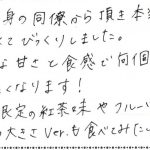 身の同僚から頂き本当
てびっくりしました。
な甘さと食感で何個
くなります！
限定の紅茶味やフルー
大きさVer.も食べてみたい